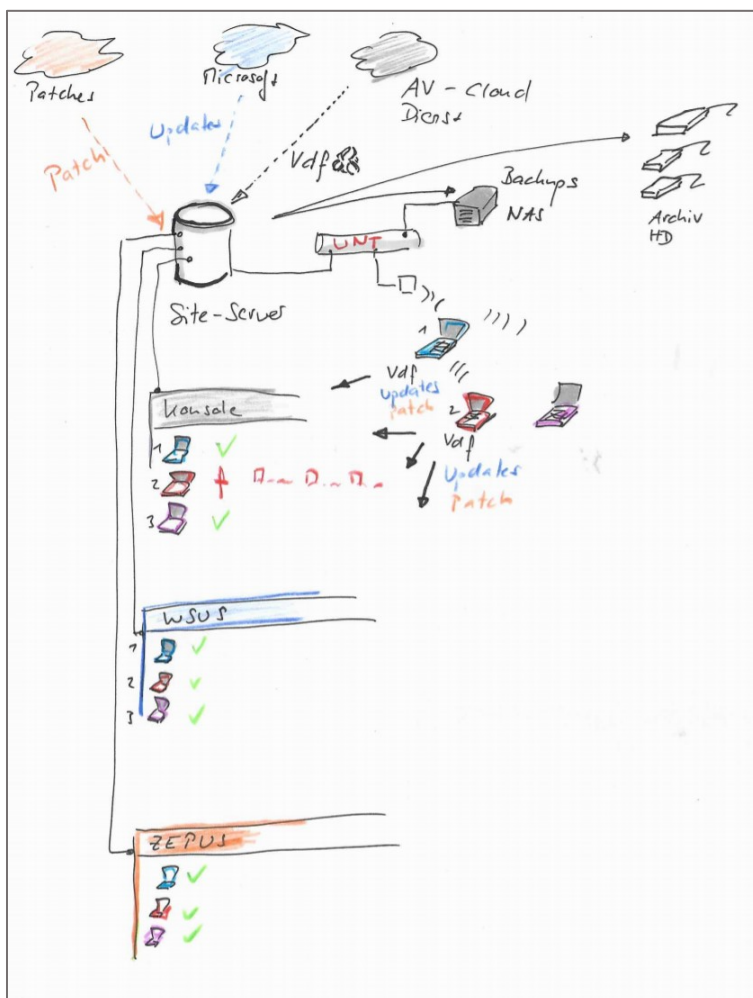 Patches
Microsoft
AV-Cloud
Dienst
Patch
Updates
Vdf
Backups
NAS
Archiv
HD
UNT
Site-Server
1
Vdf
Updates
Patch
2
Vdf
Updates
Patch
Konsole
1
2
3
WSUS
1
2
3
ZEPUS